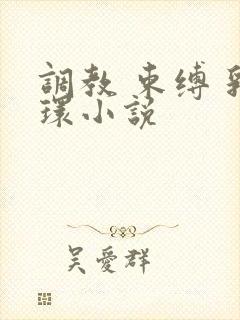 調教 束缚 乳
環小説
吴愛群